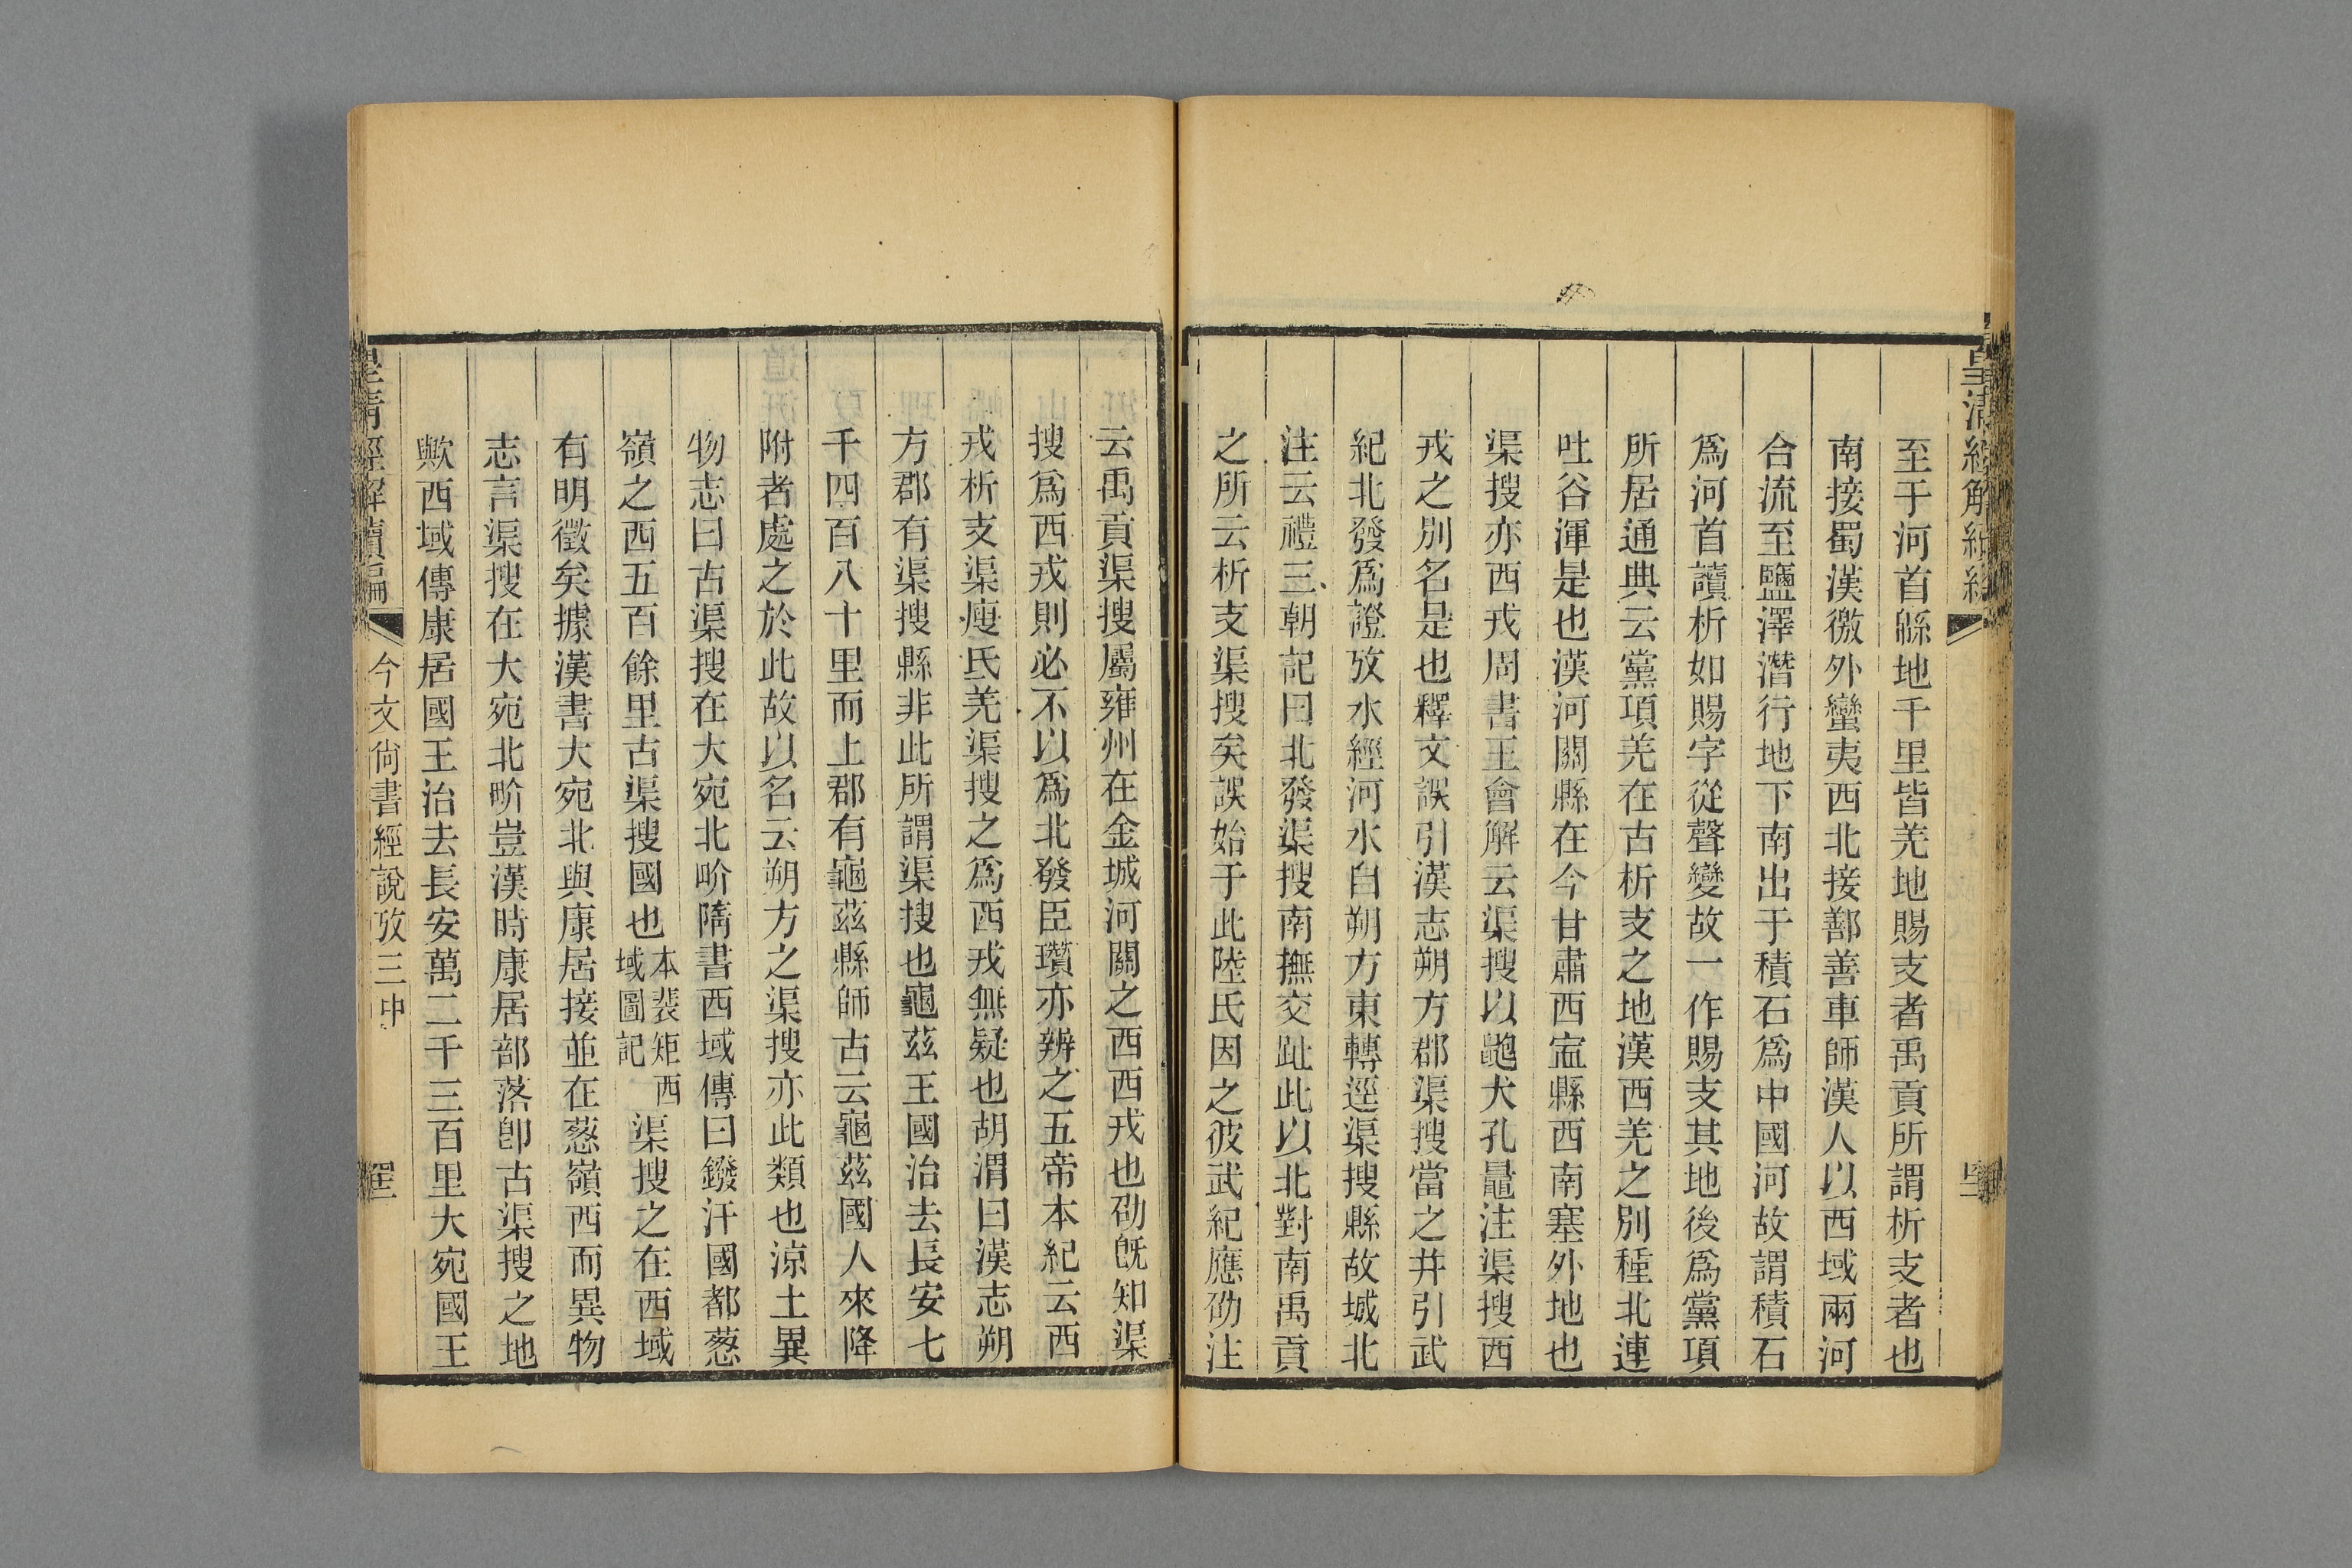 至于河首緜地千里皆羌地賜支者禹貢所謂析支者也
南接蜀漢徼外蠻夷西北接鄯善車師漢人以西域兩河
合流至鹽澤潛行地下南出于積石爲中國河故謂積石
爲河首讀析如賜字從聲變故一作賜支其地後爲黨項
所居通典云黨項羌在古析支之地漢西羌之別種北連
吐谷渾是也漢河關縣在今甘肅西寍縣西南塞外地也
渠搜亦西戎周書王會解云渠搜以鼩犬孔鼂注渠搜西
戎之別名是也釋文誤引漢志朔方郡渠搜當之并引武
紀北發爲證攷水經河水自朔方東轉逕渠搜縣故城北
注云禮三朝記曰北發渠搜南撫交趾此以北對南禹貢
之所云析支渠搜矣誤始于此陸氏因之彼武紀應劭注
云禹貢渠搜屬雍州在金城河關之西西戎也劭旣知渠
搜爲西戎則必不以爲北發臣瓚亦辨之五帝本紀云西
戎析支渠廋氐羌渠搜之爲西戎無疑也胡渭曰漢志朔
方郡有渠搜縣非此所謂渠搜也龜茲王國治去長安七
千四百八十里而上郡有龜茲縣師古云龜茲國人來降
附者處之於此故以名云朔方之渠搜亦此類也涼土異
物志曰古渠搜在大宛北畍隋書西域傳曰鏺汗國都蔥
嶺之西五百餘里古渠搜國也本裴矩西域圖記渠搜之在西域
有明徵矣據漢書大宛北與康居接並在蔥嶺西而異物
志言渠搜在大宛北畍豈漢時康居部落卽古渠搜之地
歟西域傳康居國王治去長安萬二千三百里大宛國王
皇清經解續編 今文尙書經說攷三中